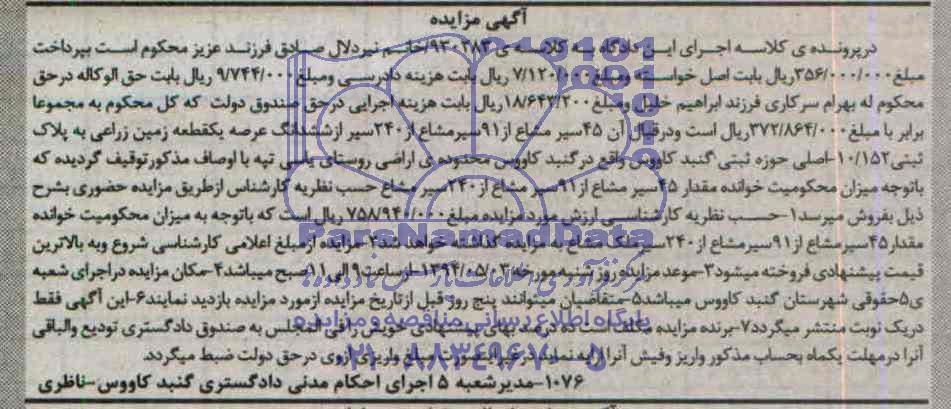 آگهی مزایده
در پرونده ی کلاسه اجرای این دادگاه به کلاسه ی ۹۳۰۳۸۳/خانم نیردلال صادق فرزند عزیز محکوم است بپرداخت
مبلغ ۳۵۶/۰۰۰/۰۰۰ریال بابت اصل خواسته ومبلغ ۷/۱۲۰/۰۰۰ ریال بابت هزینه دادرسی ومبلغ ۹/۷۴۴/۰۰۰ ریال بابت حق الوکاله درحق
محکوم له بهرام سرکاری فرزند ابراهیم خلیل ومبلغ ۱۸/۶۴۳/۲۰۰ریال بابت هزینه اجرایی درحق صندوق دولت که کل محکوم به مجموعا
برابر با مبلغ ۳۷۲/۸۶۴/۰۰۰ریال است ودرقبال آن ۴۵سیر مشاع از ۹۱سیرمشاع از ۲۴۰سیر ازششدانگ عرصه یکقطعه زمین زراعی به پلاک
ثبتی۱۰/۱۵۲-اصلی حوزه ثبتی گنبد کاووس واقع درگنبد کاووس محدوده ی اراضی روستای یاسی تپه با اوصاف مذکورتوقیف گردیده که
باتوجه میزان محکومیت خوانده مقدار ۴۵سیر مشاع از۹۱سیر مشاع از ۲۴۰سیر مشاع حسب نظریه کارشناس ازطریق مزایده حضوری بشرح
ذیل بفروش میرسد۱-حسب نظریه کارشناسی ارزش مورد مزایده مبلغ ۷۵۸/۹۴۰/۰۰۰ ریال است که باتوجه به میزان محکومیت خوانده
مقدار۴۵سیرمشاع از۹۱سیرمشاع از ۲۴۰سیرملک مشاع به مزایده گذاشته خواهد شد۲-مزایده ازمبلغ اعلامی کارشناسی شروع وبه بالاترین
قیمت پیشنهادی فروخته میشود۳-موعد مزایده روز شنبه مورخه ۱۳۹۴/۰۵/۰۳ ازساعت ۹ الی ۱۱صبح میباشد۴-مکان مزایده دراجرای شعبه
ی۵حقوقی شهرستان گنبد کاووس میباشد۵-متقاضیان میتوانند پنج روز قبل ازتاریخ مزایده ازمورد مزایده بازدید نمایند۶-این آگهی فقط
دریک نوبت منتشر میگردد۷-برنده مزایده مکلف است ده درصد بهای پیشنهادی خویش رافی المجلس به صندوق دادگستری تودیع والباقی
آنرا درمهلت یکماه بحساب مذکور واریز وفیش آنرا ارایه نماید درغیراینصورت مبلغ واریزی ازوی درحق دولت ضبط میگردد.
۱۰۷۶-مدیرشعبه ۵ اجرای احکام مدنی دادگستری گنبد کاووس-ناظری
ParsNamadData
پایگاه اطلاع رسانی مناقصه و مزایده
۰۲۱-۸۸۳۴۹۶۷۰-۵